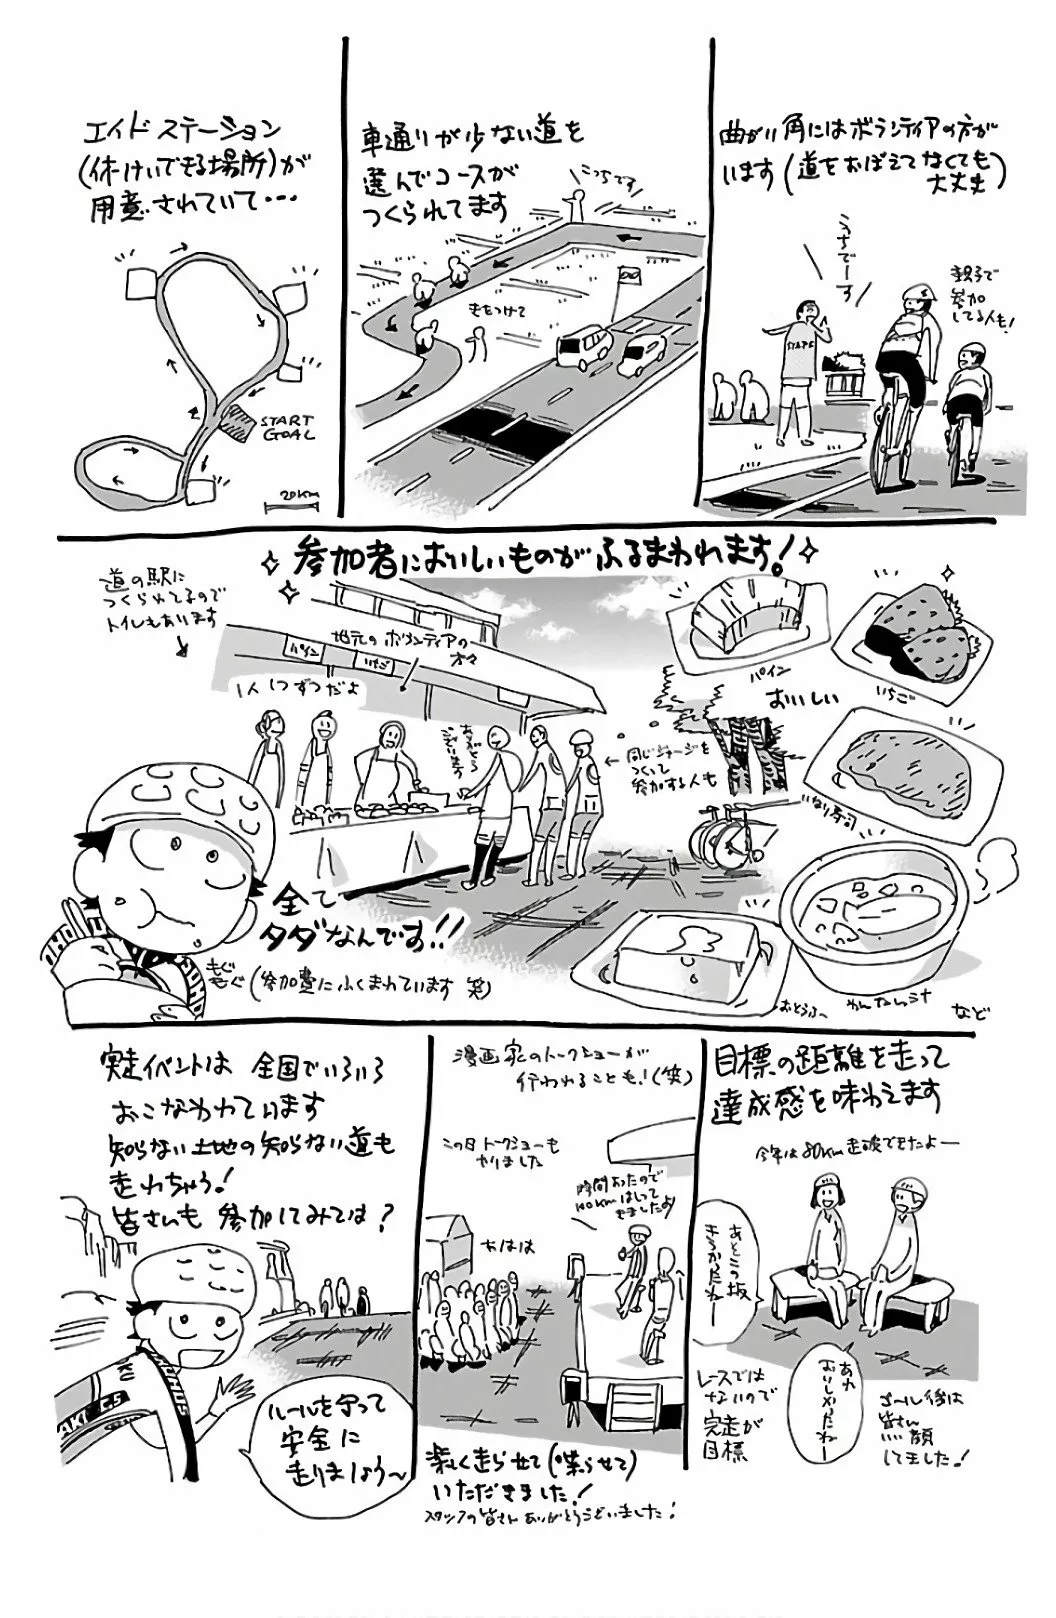 曲がり角にはボランティアの方が
います(道をおぼえてなくても
大丈夫)
こっちでーす
親子で
参加
してる人も!
STAFF
車通りが少ない道を
選んでコースが
つくられてます
こっちです
気をつけて
エイドステーション
(休けいできる場所)が
用意されていて・・・
START
GOAL
20km
参加者においしいものがふるまわれます!
道の駅に
つくられてるので
トイレもあります
地元のボランティアの
方々
パイン
いちご
1人1つずつだよ
ありがとう
ございます
同じジャージを
つくって
参加する人も
パイン
いちご
おいしい
いなり寿司
おとうふ〜
など
全て
タダなんです!!
(参加費にふくまれています 笑)
もぐ
もぐ
目標の距離を走って
達成感を味わえます
今年は80km走破できたよー
あとこの坂
きつかったねー
あれ
おいしかったねー
レースでは
ないので
完走が
目標
ゴール後は
皆さん
笑顔
でした!
漫画家のトークショーが
行われることも!(笑)
この日トークショーも
やりました
時間あったので
100kmはしって
きましたよ
あはは
楽しく走らせて(喋らせて)
いただきました!
スタッフの皆さんありがとうございました!
実走イベントは全国でいろいろ
おこなわれています
知らない土地の知らない道も
走れちゃう!
皆さんも参加してみては?
ルールを守って
安全に
走りましょう〜